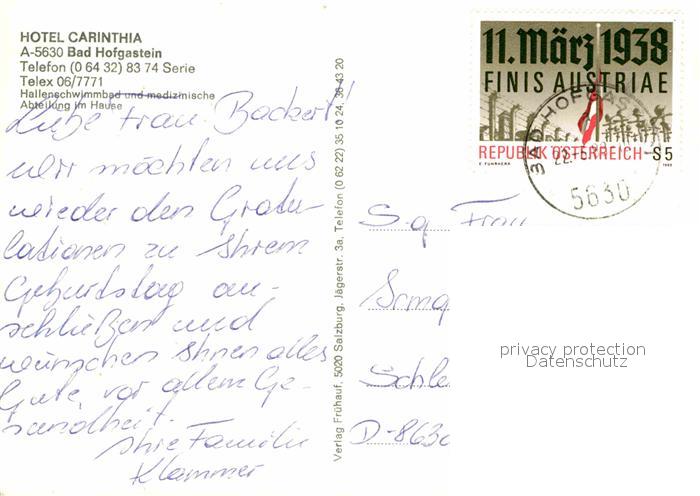 HOTEL CARINTHIA
A-5630 Bad Hofgastein
Telefon (0 64 32) 83 74 Serie
Telex 06/7771
Hallenschwimmbad und medizinische
Abteilung im Hause
Liebe Frau Backert!
wir möchten uns
wieder den Gratu-
lationen zu Ihrem
Geburtstag an-
schließen und
wünschen Ihnen alles
Gute, vor allem Ge-
sundheit.
Ihre Familie
Klammer
Verlag Frühauf, 5020 Salzburg, Jägerstr. 3a, Telefon (0 62 22) 35 10 24, 38 43 20
11. März 1938
FINIS AUSTRIAE
REPUBLIK ÖSTERREICH S 5
BAD HOFGAS
5630
S.g. Frau
Schle
D-863
privacy protection
Datenschutz